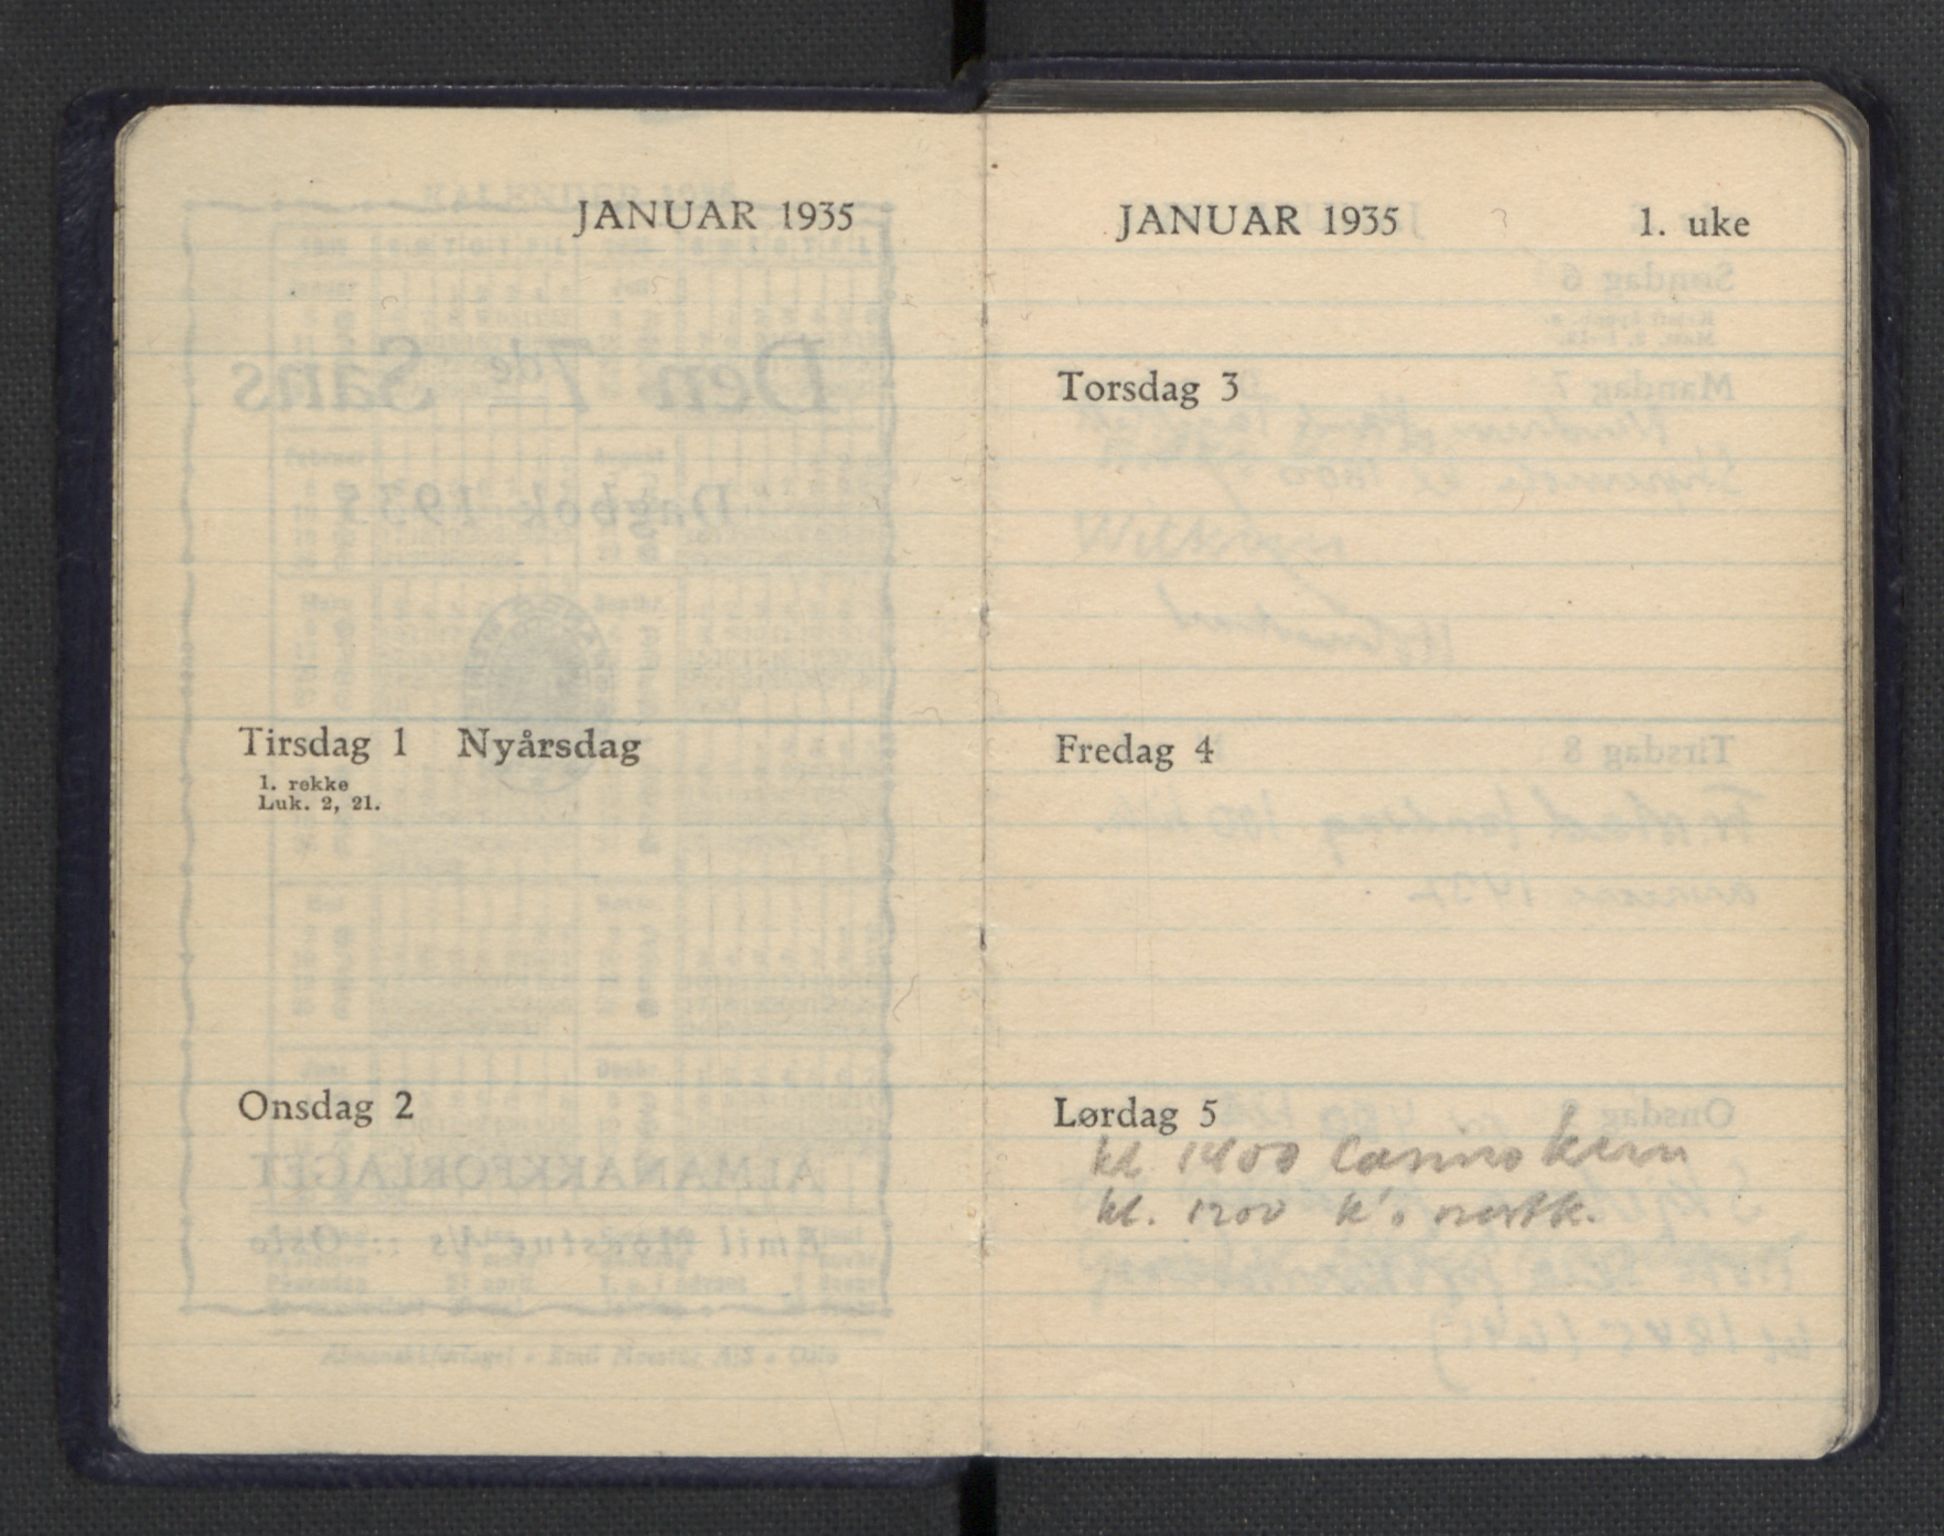 JANUAR 1935
Tirsdag 1 Nyårsdag
1. rekke
Luk. 2, 21.
Onsdag 2
JANUAR 1935 1. uke
Torsdag 3
Fredag 4
Lørdag 5
kl 1400 Casino
kl. 1700